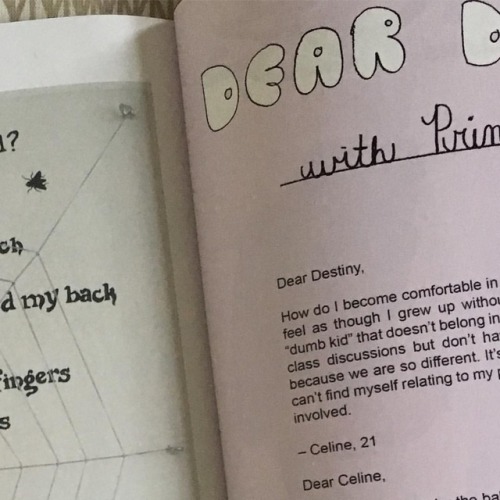 ch
d my back
fingers
s
DEAR D
with Prin
Dear Destiny,
How do I become comfortable in
feel as though I grew up withou
"dumb kid" that doesn't belong in
class discussions but don't ha
because we are so different. It's
can't find myself relating to my p
involved.
– Celine, 21
Dear Celine,
the ba